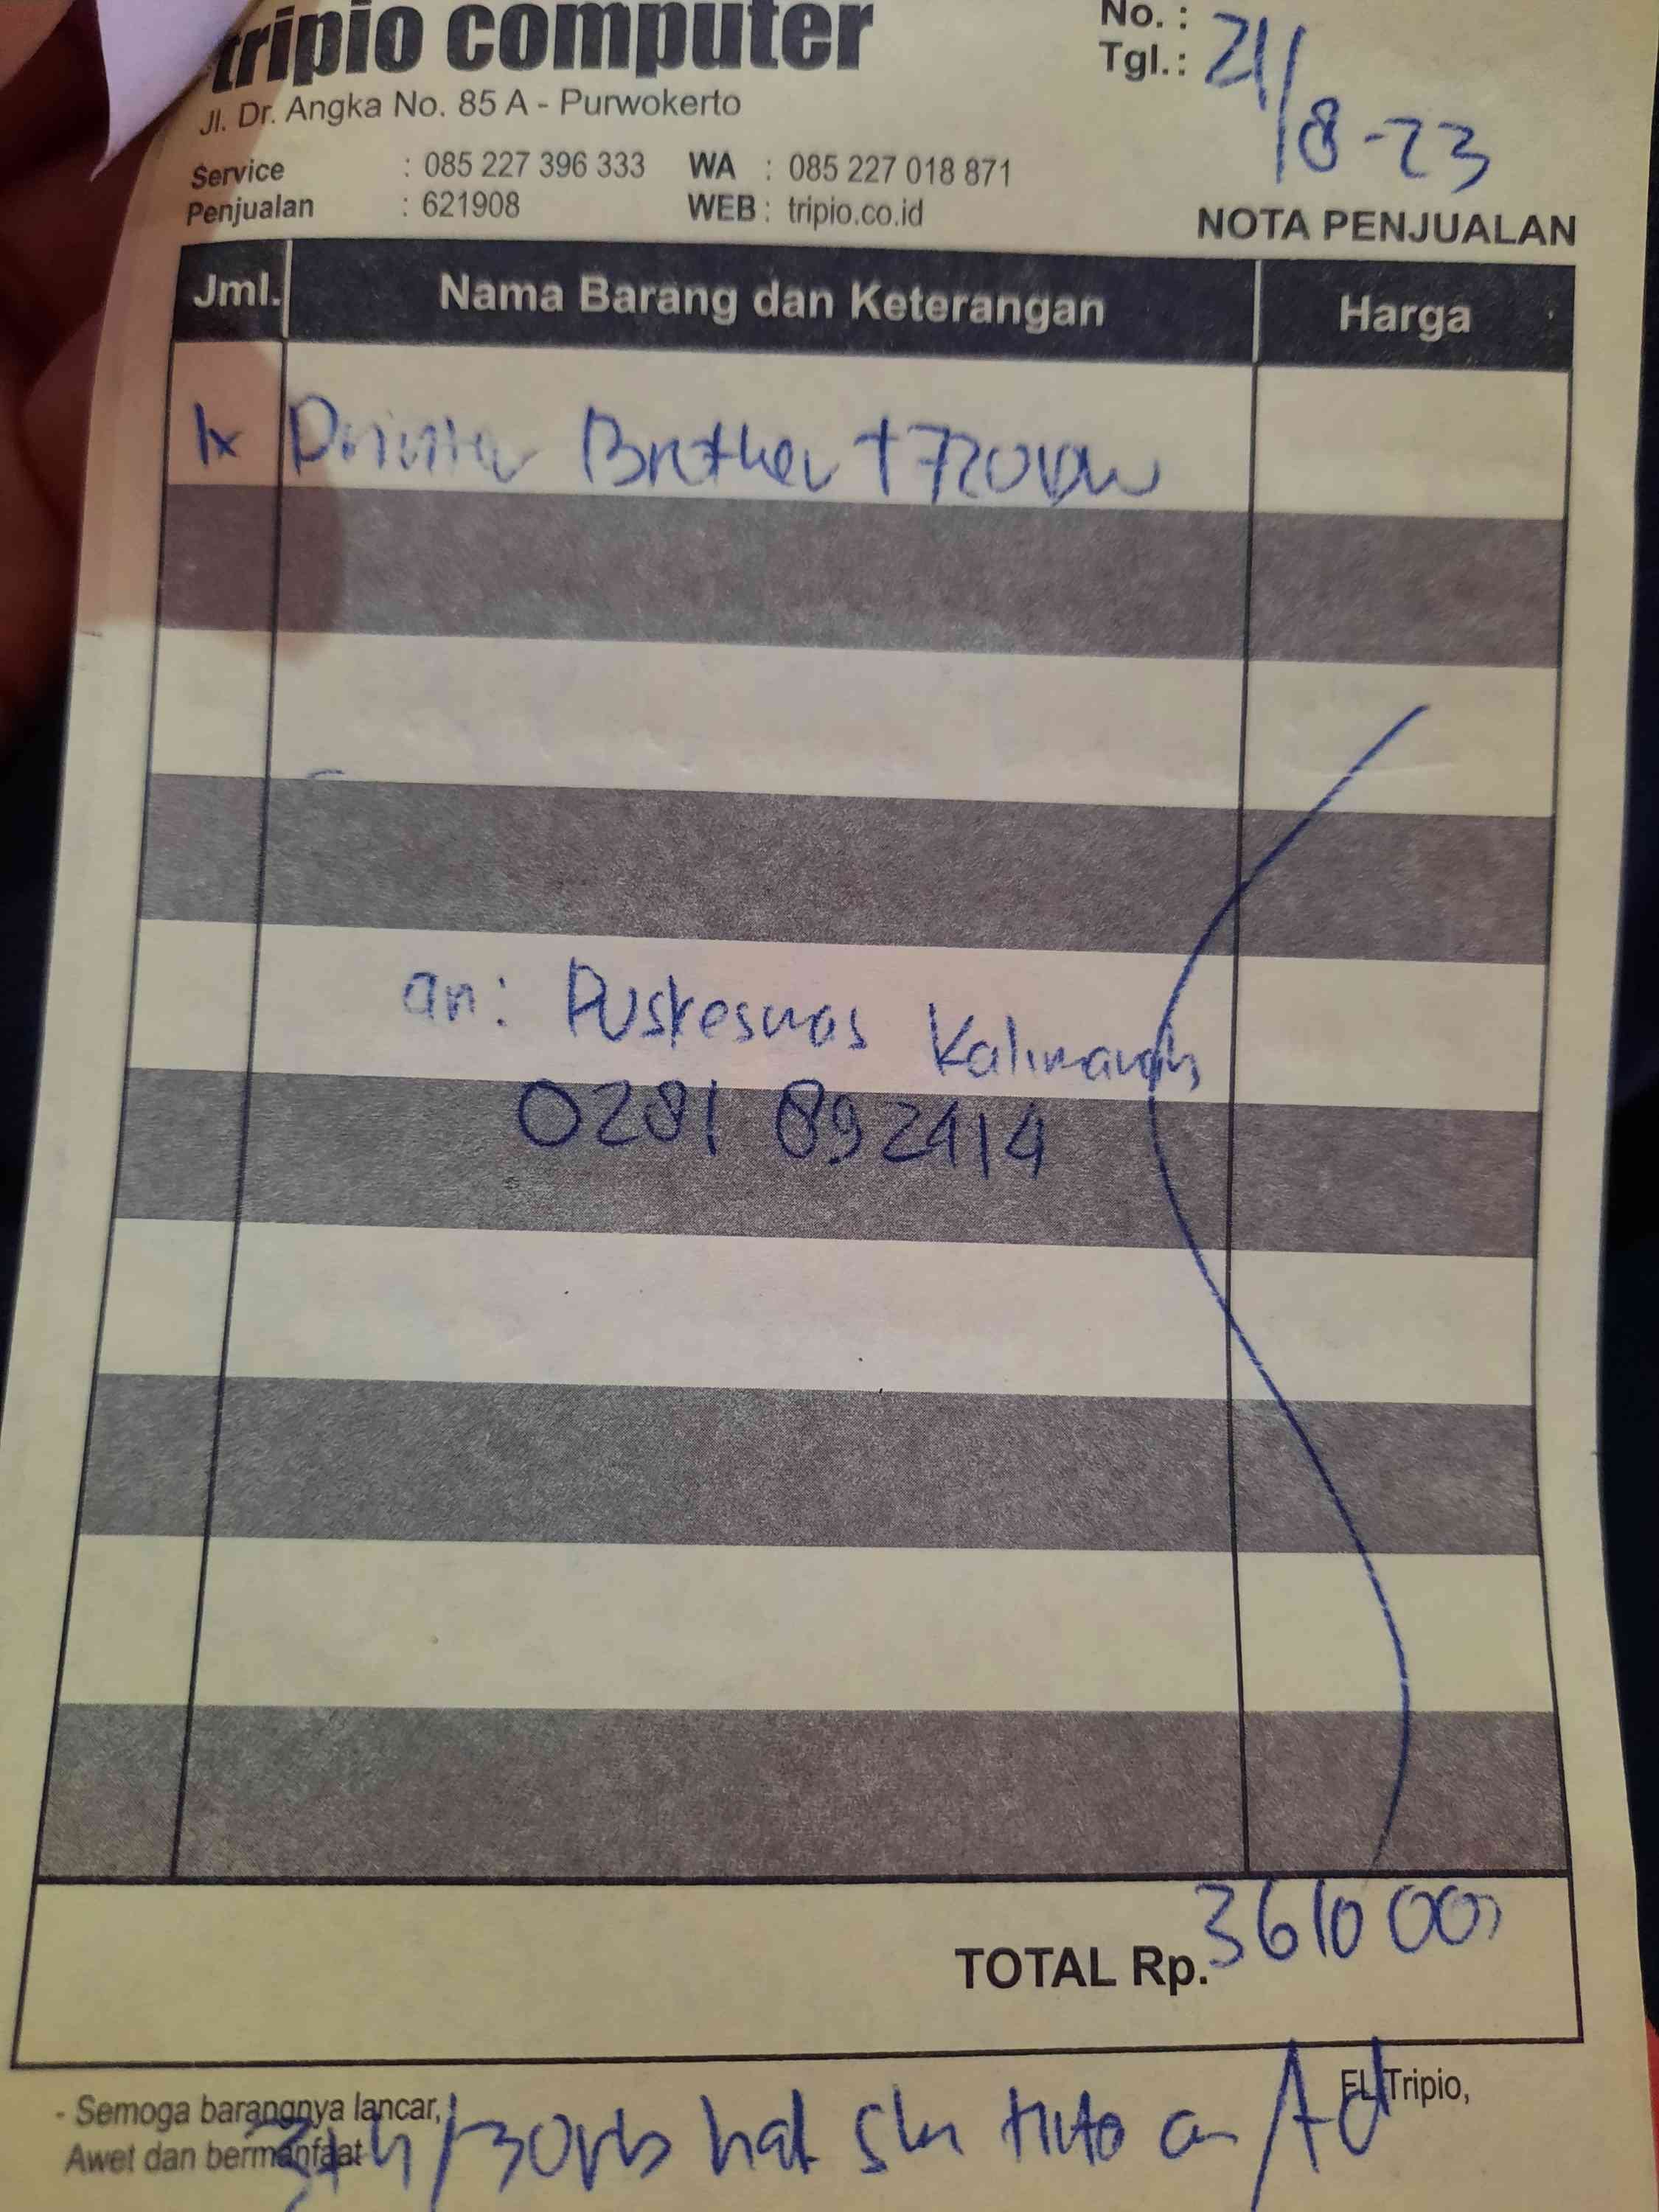 tripio computer
Jl. Dr. Angka No. 85 A - Purwokerto
Service : 085 227 396 333 WA : 085 227 018 871
Penjualan : 621908 WEB : tripio.co.id
No. :
Tgl. : 21/8-23
NOTA PENJUALAN
Jml. Nama Barang dan Keterangan Harga
1x Printer Brother T720DW
an: Puskesmas Kalimanah
0281 892414
TOTAL Rp. 3610 000
- Semoga barangnya lancar, Tripio,
Awet dan bermanfaat